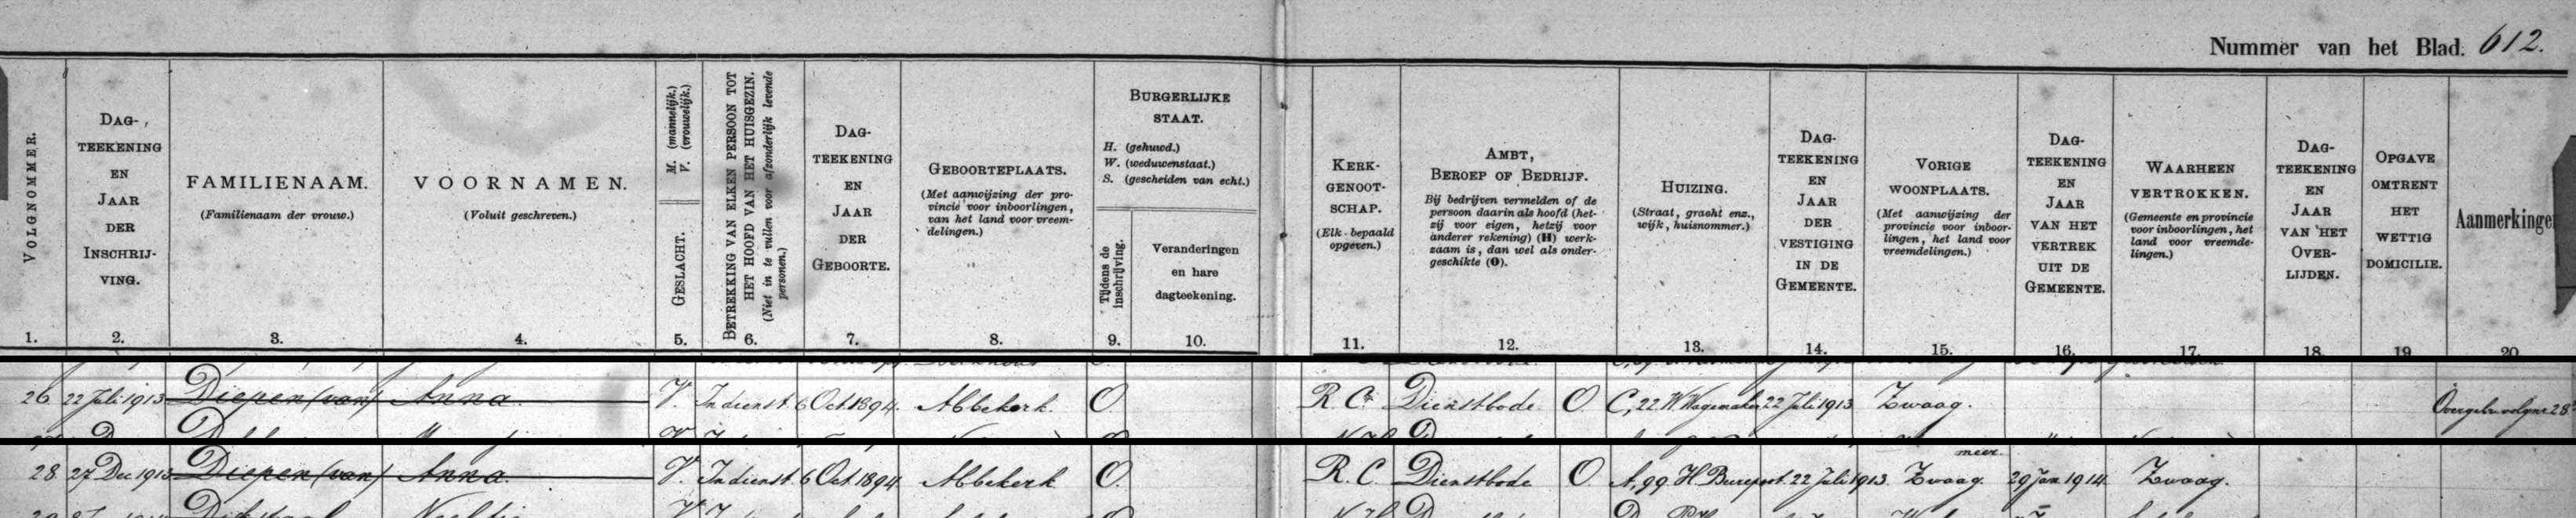 Nummer van het Blad. 612.
VOLGNOMMER.
1.
DAG-
TEEKENING
EN
JAAR
DER
INSCHRIJ-
VING.
2.
FAMILIENAAM.
(Familienaam der vrouw.)
3.
VOORNAMEN.
(Voluit geschreven.)
4.
M. (mannelijk.)
V. (vrouwelijk.)
GESLACHT.
5.
BETREKKING VAN ELKEN PERSOON TOT
HET HOOFD VAN HET HUISGEZIN.
(Niet in te vullen voor afzonderlijk levende
personen.)
6.
DAG-
TEEKENING
EN
JAAR
DER
GEBOORTE.
7.
GEBOORTEPLAATS.
(Met aanwijzing der pro-
vincie voor inboorlingen,
van het land voor vreem-
delingen.)
8.
BURGERLIJKE
STAAT.
H. (gehuwd.)
W. (weduwenstaat.)
S. (gescheiden van echt.)
Tijdens de
inschrijving.
9.
Veranderingen
en hare
dagteekening.
10.
KERK-
GENOOT-
SCHAP.
(Elk bepaald
opgeven.)
11.
AMBT,
BEROEP OF BEDRIJF.
Bij bedrijven vermelden of de
persoon daarin als hoofd (het-
zij voor eigen, hetzij voor
anderer rekening) (H) werk-
zaam is, dan wel als onder-
geschikte (O).
12.
HUIZING.
(Straat, gracht enz.,
wijk, huisnommer.)
13.
DAG-
TEEKENING
EN
JAAR
DER
VESTIGING
IN DE
GEMEENTE.
14.
VORIGE
WOONPLAATS.
(Met aanwijzing der
provincie voor inboor-
lingen, het land voor
vreemdelingen.)
15.
DAG-
TEEKENING
EN
JAAR
VAN HET
VERTREK
UIT DE
GEMEENTE.
16.
WAARHEEN
VERTROKKEN.
(Gemeente en provincie
voor inboorlingen, het
land voor vreemde-
lingen.)
17.
DAG-
TEEKENING
EN
JAAR
VAN HET
OVER-
LIJDEN.
18.
OPGAVE
OMTRENT
HET
WETTIG
DOMICILIE.
19
Aanmerkinge
20.
26 22 Juli 1913 Diepen (van) Anna. V. In dienst 6 Oct. 1894. Abbekerk. O. R. C. Dienstbode O. C, 22 W. Wagemaker 22 Juli 1913 Zwaag. Overgebr. volgnr. 28
meer.
28. 27 Dec 1913 Diepen (van) Anna. V. In dienst. 6 Oct. 1894 Abbekerk O. R. C. Dienstbode O. A, 99 H. 22 Juli 1913. Zwaag. 29 Jan 1914. Zwaag.